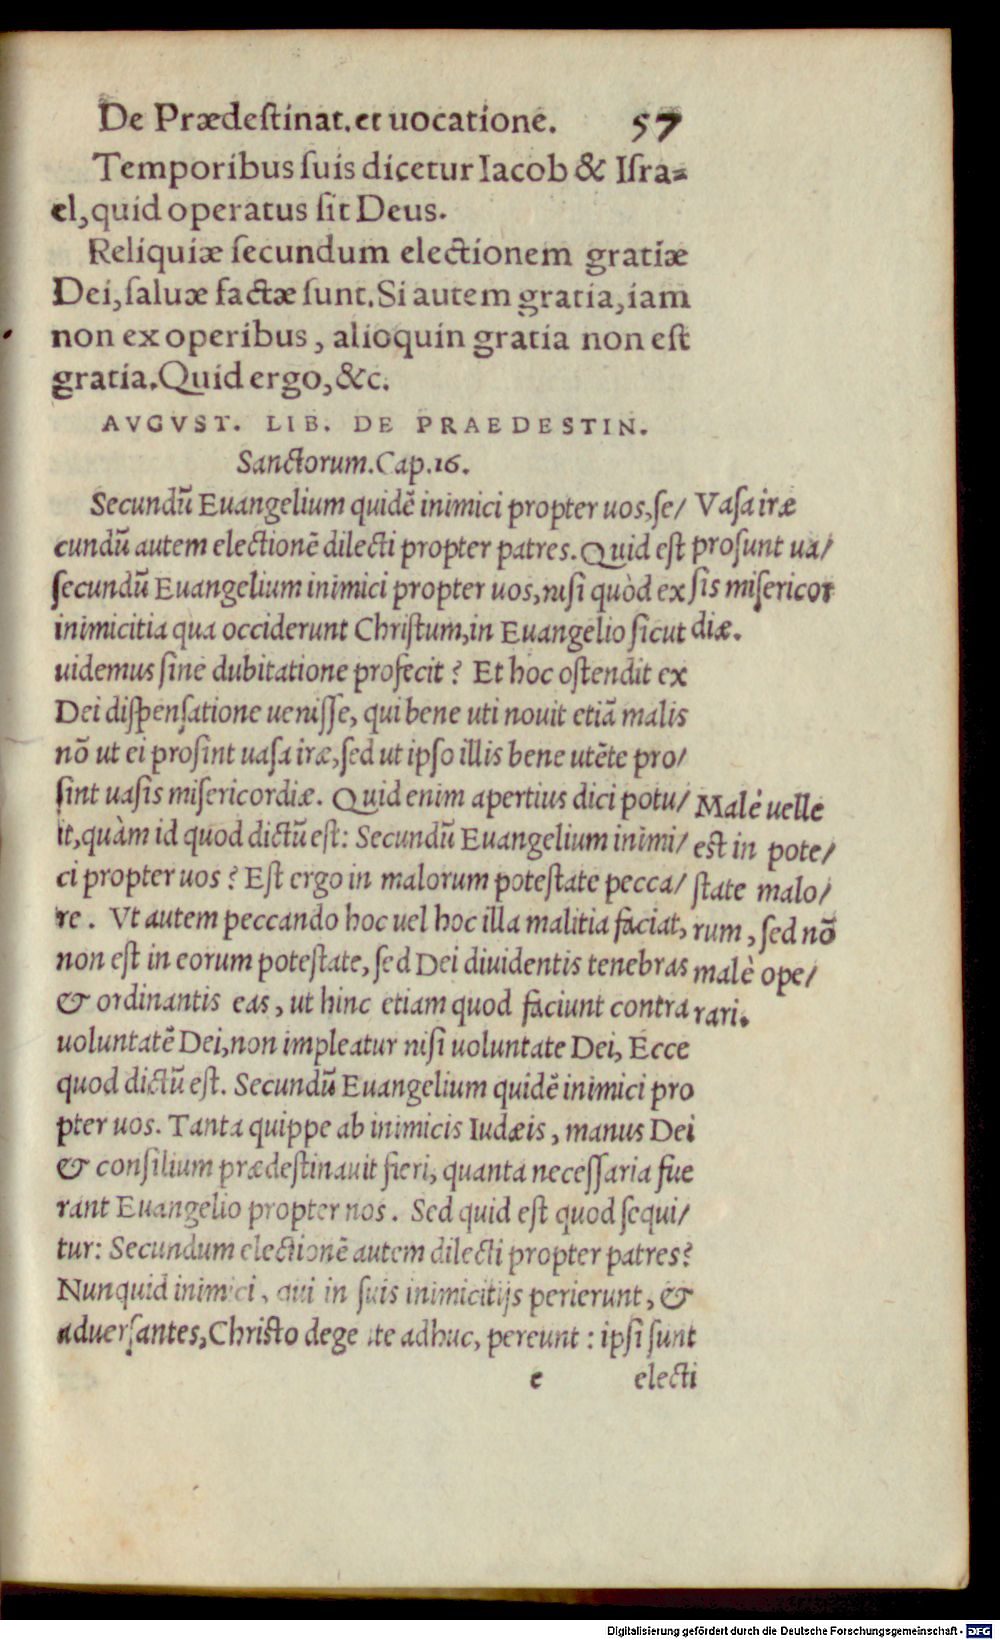 De Prædeſtinat. et uocatione. 57
Temporibus ſuis dicetur Iacob & Iſra=
el, quid operatus ſit Deus.
Reliquiæ ſecundum electionem gratiæ
Dei, ſaluæ factæ ſunt. Si autem gratia, iam
non ex operibus, alioquin gratia non eſt
gratia. Quid ergo, &c.
AVGVST. LIB. DE PRAEDESTIN.
Sanctorum. Cap. 16.
Secundũ Euangelium quidẽ inimici propter uos, ſe/
cundũ autem electionẽ dilecti propter patres. Quid eſt
ſecundũ Euangelium inimici propter uos, niſi quòd ex
inimicitia qua occiderunt Chriſtum, in Euangelio ſicut
uidemus ſine dubitatione profecit? Et hoc oſtendit ex
Dei diſpenſatione ueniſſe, qui bene uti nouit etiã malis
nõ ut ei proſint uaſa iræ, ſed ut ipſo illis bene utẽte pro/
ſint uaſis miſericordiæ. Quid enim apertius dici potu/
it, quàm id quod dictũ eſt: Secundũ Euangelium inimi/
ci propter uos? Eſt ergo in malorum poteſtate pecca/
re. Vt autem peccando hoc uel hoc illa malitia faciat,
non eſt in eorum poteſtate, ſed Dei diuidentis tenebras
& ordinantis eas, ut hinc etiam quod faciunt contra
uoluntatẽ Dei, non impleatur niſi uoluntate Dei, Ecce
quod dictũ eſt. Secundũ Euangelium quidẽ inimici pro
pter uos. Tanta quippe ab inimicis Iudæis, manus Dei
& conſilium prædeſtinauit fieri, quanta neceſſaria fue
rant Euangelio propter nos. Sed quid eſt quod ſequi/
tur: Secundum electionẽ autem dilecti propter patres?
Nunquid inimici, qui in ſuis inimicitijs perierunt, &
aduerſantes, Chriſto de gente adhuc, pereunt: ipſi ſunt
e electi
Vaſa iræ
proſunt ua/
ſis miſericor
diæ.
Malè uelle
eſt in pote/
ſtate malo/
rum, ſed nõ
malè ope/
rari.
Digitalisierung gefördert durch die Deutsche Forschungsgemeinschaft - DFG